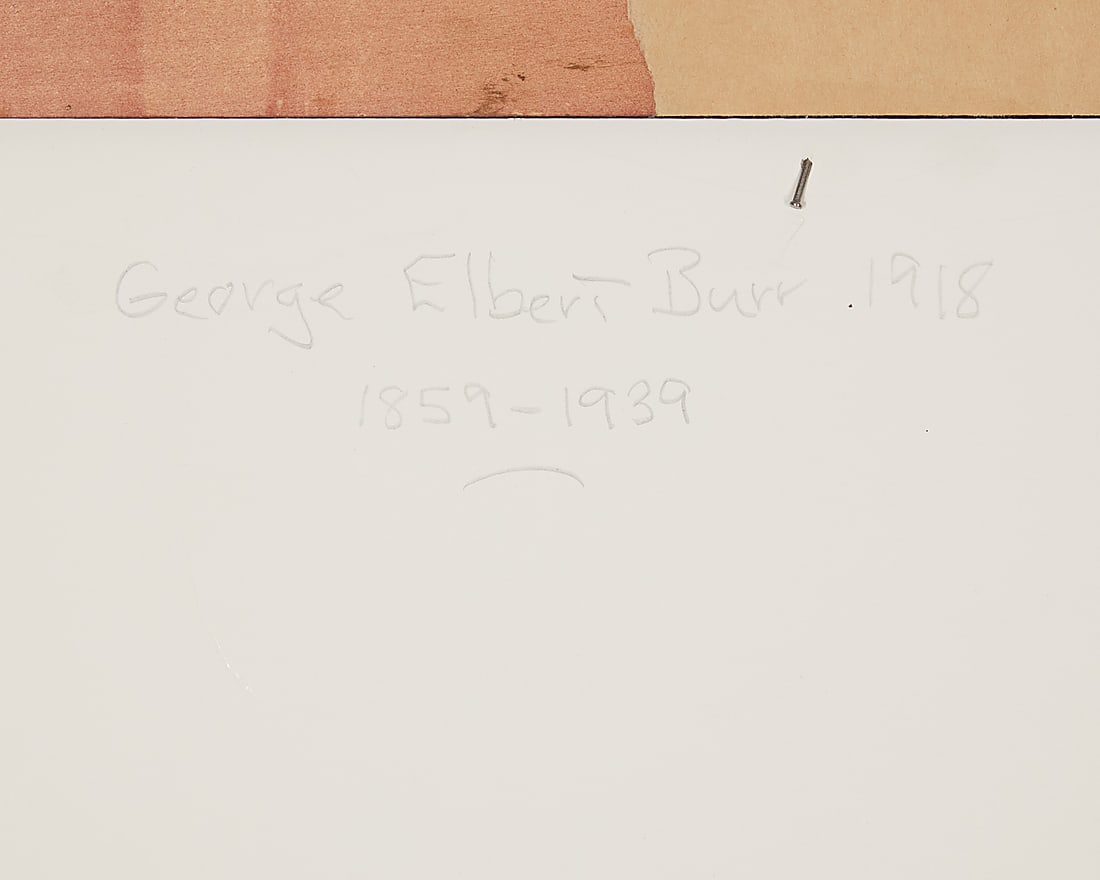 George Elbert Burr .1918
1859-1939